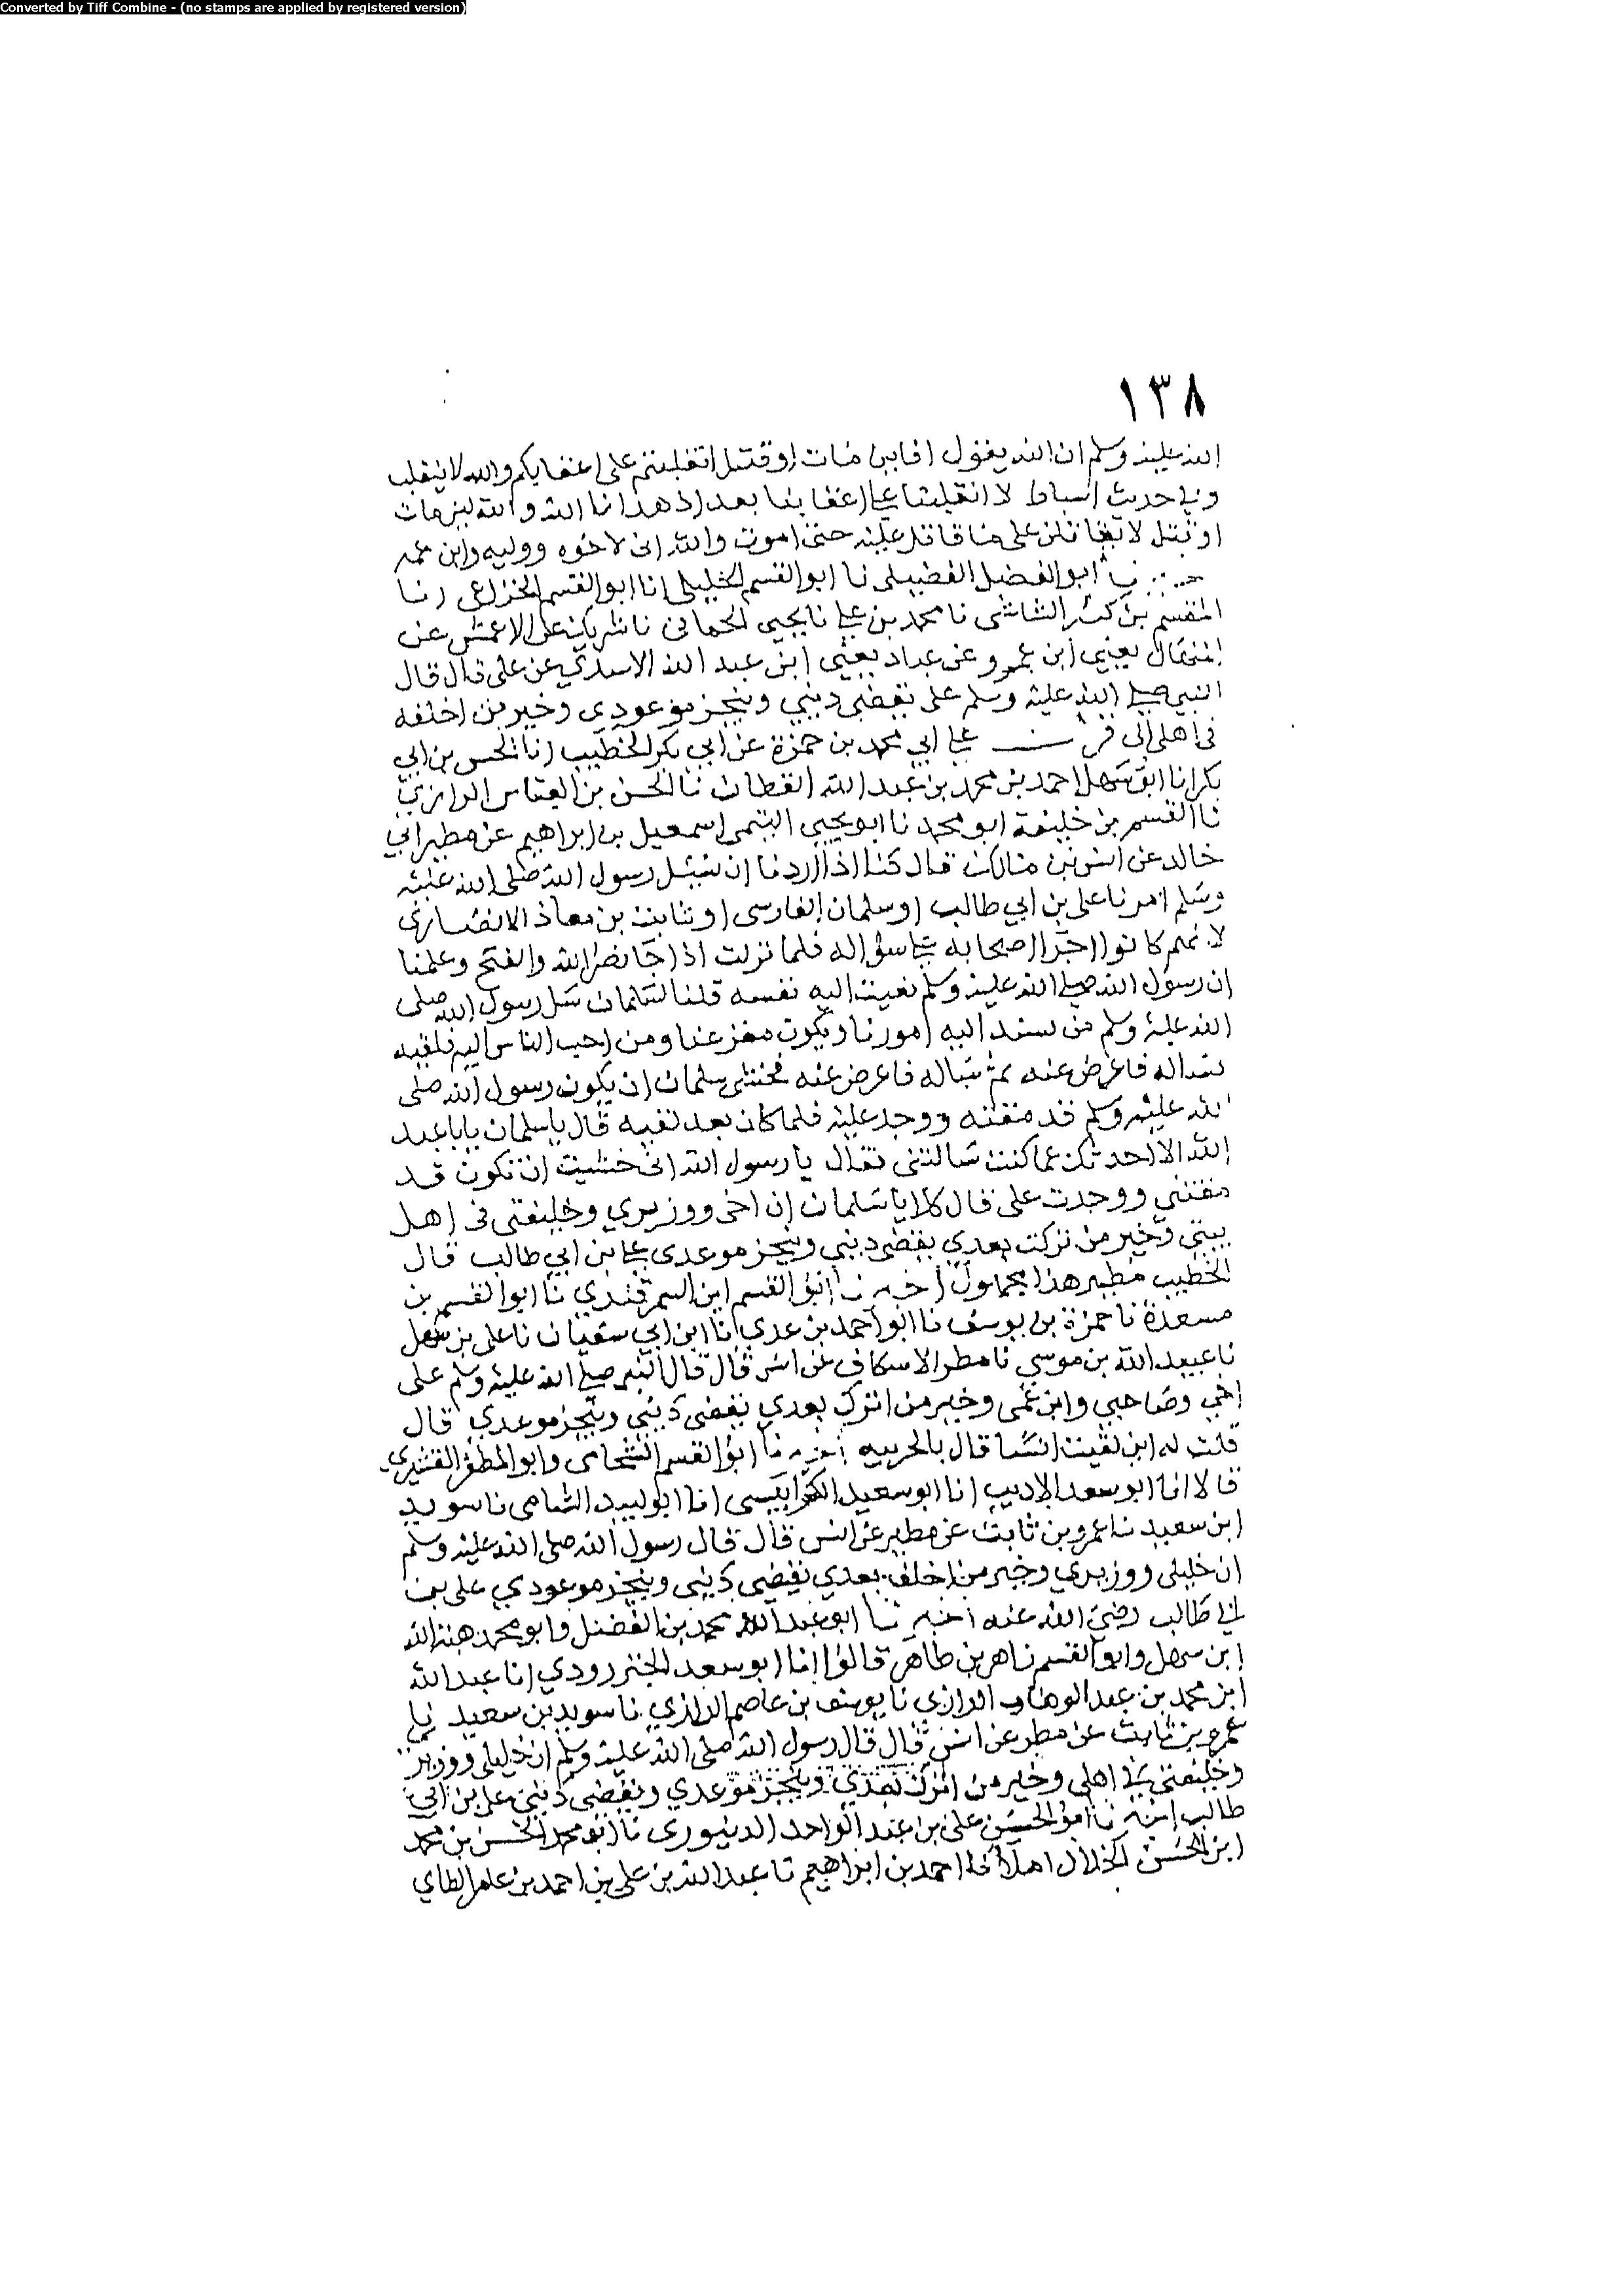 Converted by Tiff Combine - (no stamps are applied by registered version)
١٣٨
الله عليه وسلم ان الله يقول افاين مات او قتل انقلبتم على اعقابكم والله لا ينقلب
وفي حديث اسباط لا انقلبنا على اعقابنا بعد اذ هدانا الله والله لين مات
او قتل لاقاتلن على ما قاتل عليه حتى اموت والله انى لاخوه ووليه وابن عمه
ابو الفضل الفضيلى نا ابو القسم الخليلى انا ابو القسم الخزاعى انا
الهيثم بن كليب الشاشى نا محمد بن على نا يحيى الحمانى نا شريك عن الاعمش عن
المنهال يعني ابن عمرو عن عباد يعني ابن عبد الله الاسدي عن على قال قال
النبي صلى الله عليه وسلم على يقضى ديني وينجز موعودى وخير من اخلفه
فى اهلى على ابي محمد بن حمزة عن ابي بكر الخطيب انا الحسن بن ابي
بكر انا ابو سهل احمد بن محمد بن عبد الله القطان نا الحسن بن العباس الرازي
نا القسم بن خليفة ابو محمد نا ابو يحيى التيمى اسمعيل بن ابراهيم عن مطير ابي
خالد عن انس بن مالك قال كنا اذا اردنا ان نسئل رسول الله صلى الله عليه
وسلم امرنا على بن ابي طالب او سلمان الفارسى او ثابت بن معاذ الانصارى
لانهم كانوا اجرا اصحابه على سؤاله فلما نزلت اذا جا نصر الله والفتح وعلمنا
ان رسول الله صلى الله عليه وسلم نعيت اليه نفسه قلنا لسلمان سل رسول الله صلى
الله عليه وسلم من نسند اليه امورنا ويكون مفزعنا ومن احب الناس اليه فلقيه
فساله فاعرض عنه ثم ساله فاعرض عنه فخشى سلمان ان يكون رسول الله صلى
الله عليه وسلم قد مقته ووجد عليه فلما كان بعد لقيه قال يا سلمان يابا عبد
الله الا احدثك عما كنت سالتنى فقال يا رسول الله انى خشيت ان تكون قد
مقتني ووجدت على قال كلا يا سلمان ان اخى ووزيري وخليفتى فى اهل
بيتي وخير من تركت بعدي يقضى ديني وينجز موعدى على بن ابي طالب قال
الخطيب مطير هذا مجهول اخبرنا ابو القسم ابن السمرقندي نا ابو القسم بن
مسعدة نا حمزة بن يوسف نا ابو احمد بن عدي انا ابن ابي سفيان نا على بن سهل
نا عبيد الله بن موسي نا مطر الاسكافي عن انس قال قال النبي صلى الله عليه وسلم على
اخي وصاحبي وابن عمى وخير من اترك بعدي يقضى ديني وينجز موعدي قال
قلت له اين لقيت انسا قال بالخريبه اخبرنا ابو القسم الشحامى وابو المظفر القشيري
قالا انا ابو سعد الاديب انا ابو سعيد الكرابيسى انا ابو لبيد الشامى نا سويد
ابن سعيد نا عمرو بن ثابت عن مطير عن انس قال قال رسول الله صلى الله عليه وسلم
ان خليلى ووزيري وخير من اخلف بعدي يقضى ديني وينجز موعودي على بن
ابي طالب رضى الله عنه اخبرنا ابو عبد الله محمد بن الفضل وابو محمد هبة الله
ابن سهل وابو القسم زاهر بن طاهر قالوا انا ابو سعد الجنزرودي انا عبد الله
ابن محمد بن عبد الوهاب الرازى نا يوسف بن عاصم الرازي نا سويد بن سعيد نا
عمرو بن ثابت عن مطر عن انس قال قال رسول الله صلى الله عليه وسلم ان خليلى ووزير
وخليفتي في اهلى وخير من اترك بعدي وينجز موعدي ويقضى ديني على بن ابي
طالب اخبرنا ابو الحسن على بن عبد الواحد الدينورى نا ابو محمد الحسن بن محمد
ابن الحسن الخلال املا نا احمد بن ابراهيم نا عبد الله بن على بن احمد بن عامر الطاي